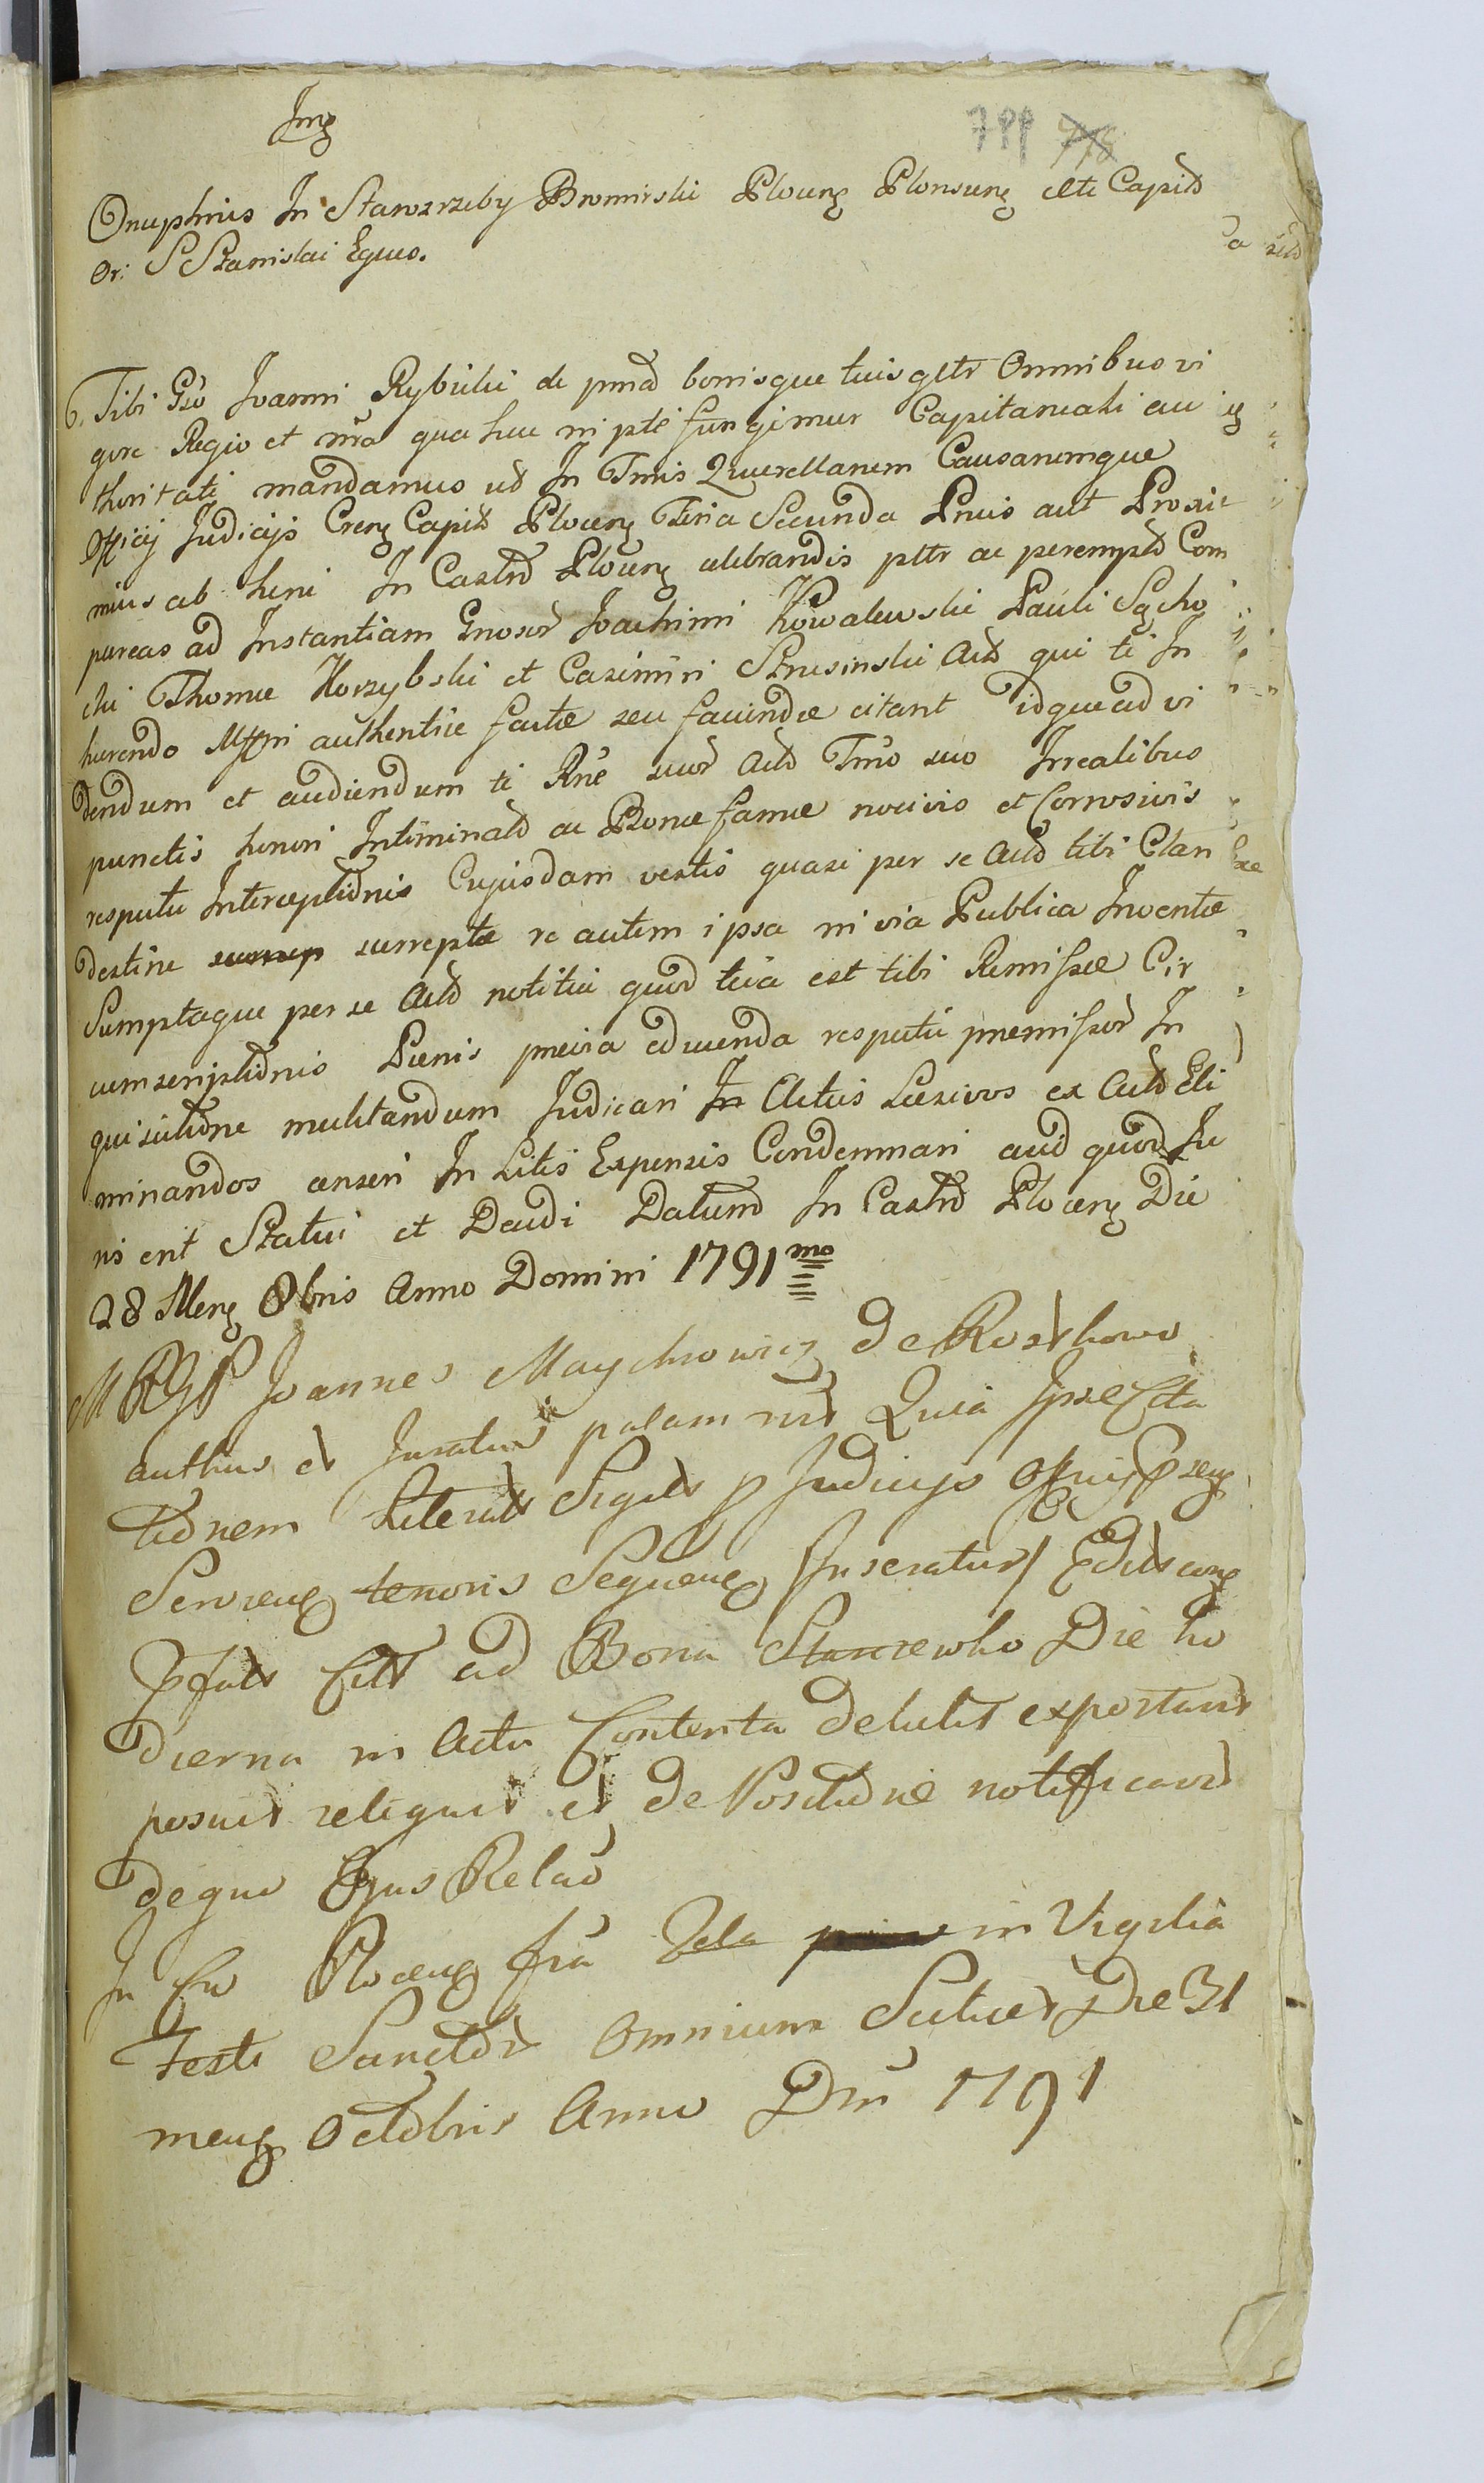 Img
799 778
Onuphrius In Starozrzeby Bromirski Plocens Plonscens etc Capits
Or: S Stanislai Eques.
6. Tibi Gso Joanni Rybicki de pmd bonisque tuis gltr Omnibus vi
gore Regio et nra qua hac in pte fungimur Capitaneali au
thoritate mandamus ut In Tmis Querellarum Causarumque
Officij Judicijs Crens Capits Plocens Feria Secunda Pruis aut Proxi
mius ab heni In Castro Plocens celebrandis pltr ac perempts Com
pareas ad Instantiam Gnosor Joachimi Kowalewski Pauli Sycho
cki Thomae Korzybski et Casimiri Strusinski Acts qui te In
haerendo Mffni authentice factae seu faciendae citant idque ad vi
dendum et audiendum te Rne suor Acto Tmo suo Irrealibus
punctis honori Intiminato ac Bonae famae nocivis et Corrosivis
respectu Interceptionis Cujusdam vestis quasi per se Acto tibi Clan
destine surrep surreptae re autem ipsa in via Publica Inventae
Sumptaque per se Acto notitia quod tua est tibi Remissae Cir
cumscriptionis Poenis praevia educenda respectu praemissor In
quisitione mulctandum Judicari In Actus Laesivos ex Actis Eli
minandos censeri In Litis Expensis Condemnari aud quod Ju
ris erit Statui et Decidi Datum In Castro Plocens Die
28 Mens 8bris Anno Domini 1791 mo
MRGP Joannes Maychrowicz de Rostkowo
authus et Juratus palam rect Quia Ipse Cita
tionem Literats Sigilts p Judicijs Officij Praens
Serviens tenoris Sequens /Inseratur/ Edits cong
Pfats Citt ad Bona Stanzewko Die ho
dierna in Actu Contenta delatis exportans
posuit reliquit et de Positione notificavit
de quo Ejus Relao
In Co Plocens fria 2da in Vigilia
Festi Sanctor Omnium Scilicet Die 31
mens Octobris Anno Dni 1791